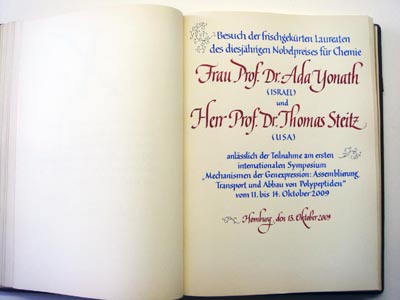 Besuch der frischgekürten Laureaten
des diesjährigen Nobelpreises für Chemie
Frau Prof. Dr. Ada Yonath
(ISRAEL)
und
Herr Prof. Dr. Thomas Steitz
(USA)
anläßlich der Teilnahme am ersten
internationalen Symposium
„Mechanismen der Genexpression: Assemblierung,
Transport und Abbau von Polypeptiden“
vom 11. bis 14. Oktober 2009
Homburg, den 13. Oktober 2009